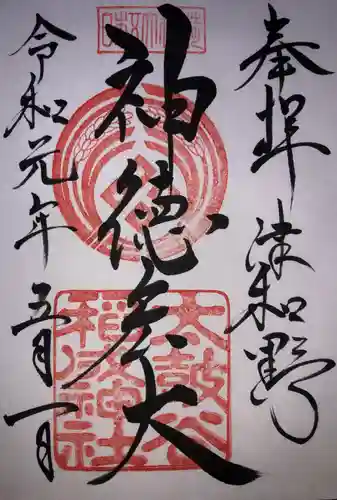 奉拝 津和野
神徳宏大
令和元年 五月一日
太鼓谷
稲成神社